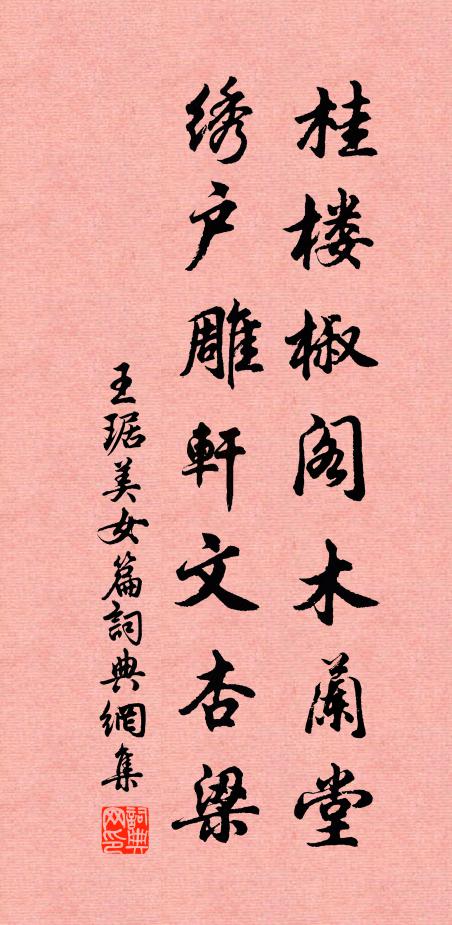 桂楼椒阁木蘭堂
绣户雕軒文杏梁
王琚美女篇詞典網集
詞典网印